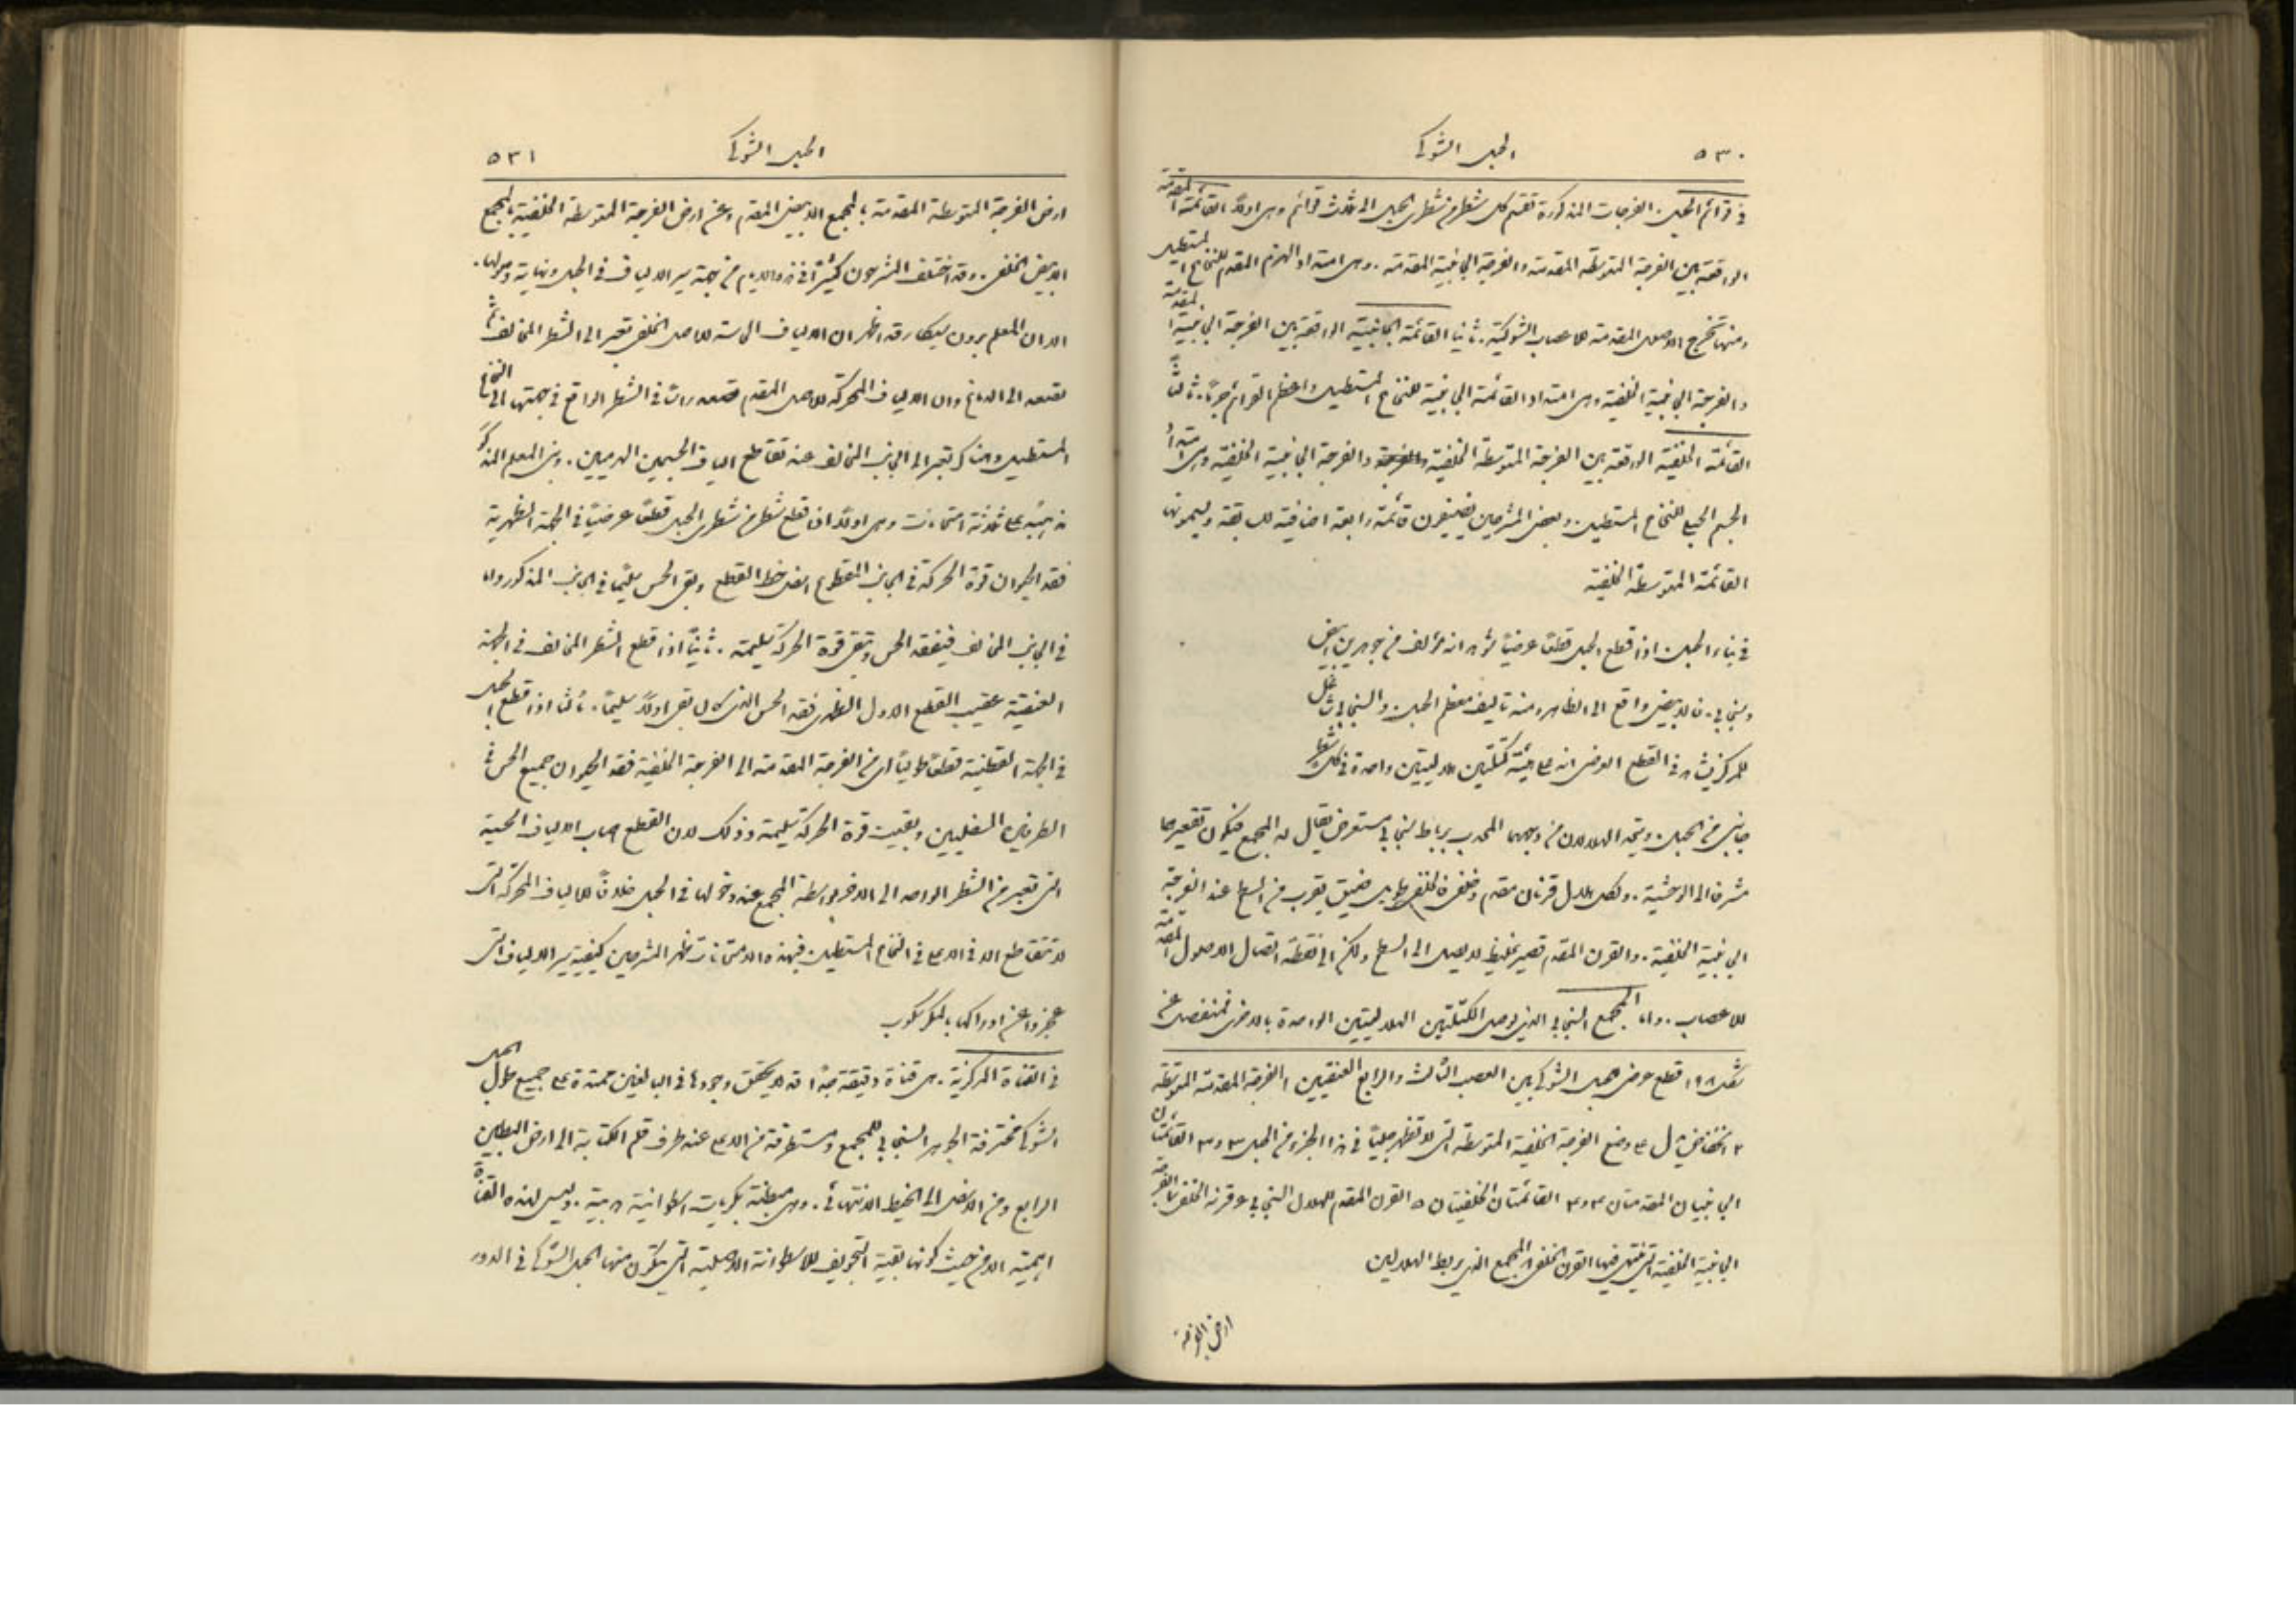 ٥٣٠
الحبل الشوكي
في قوائم الحبل. الفرجات المذكورة تقسم كل شطر من شطري الحبل الى ثلاث قوائم وهي اولاً القائمة المقدمة
الواقعة بين الفرجة المتوسطة المقدمة والفرجة الجانبية المقدمة. وهي امتداد الهرم المقدم للنخاع المستطيل
ومنها تخرج الاصول المقدمة للاعصاب الشوكية. ثانيا القائمة الجانبية الواقعة بين الفرجة الجانبية المقدمة
والفرجة الجانبية الخلفية وهي امتداد القائمة الجانبية للنخاع المستطيل واعظم القوائم جرماً. ثالثاً
القائمة الخلفية الواقعة بين الفرجة المتوسطة الخلفية والفرجة الجانبية الخلفية وهي امتداد
الجسم الحبلي للنخاع المستطيل. وبعض المشرحين يضيفون قائمة رابعة اضافية للسابقة ويسمونها
القائمة المتوسطة الخلفية
في بناء الحبل. اذا قطع الحبل قطعاً عرضياً تؤهر انه مؤلف من جوهرين ابيض
وسنجابي. فالابيض واقع الى الظاهر ومنه تاليف معظم الحبل. والسنجابي شاغل
للمركز فيشاهد في القطع العرضي انه على هيئة كتلتين هلاليتين واحدة في كل شطر
جانبي من الحبل. ويتحد الهلالان من وجههما المحدب برباط سنجابي مستعرض يقال له المجمع فيكون تقعيرهما
مشرفا الى الوحشية. ولكل هلال قرنان مقدم وخلفي فالخلفي طويل ضيق يقرب من السطح عند الفرجة
الجانبية الخلفية. والقرن المقدم قصير غليظ لا يصل الى السطح ولكن الى نقطة اتصال الاصول المقدمة
للاعصاب. واما المجمع السنجابي الذي يوصل الكتلتين الهلاليتين الواحدة بالاخرى فمنفصل عن
شكل ١٩٨ قطع عرضي للحبل الشوكي بين العصب الثالث والرابع العنقيين ١ الفرجة المقدمة المتوسطة
٢ انخفاض يدل على وضع الفرجة الخلفية المتوسطة التي لا تظهر جلياً في هذا الجزء من الحبل ٣ و٣ القائمتان
الجانبيتان المقدمتان ٤ و٤ القائمتان الخلفيتان ٥ القرن المقدم للهلال السنجابي ٦ قرنه الخلفي ٧ الفرجة
الجانبية الخلفية التي ينتهي فيها القرن الخلفي ٨ المجمع الذي يربط الهلالين
ارض الفرجة
٥٣١
الحبل الشوكي
ارض الفرجة المتوسطة المقدمة بالمجمع الابيض المقدم وعن ارض الفرجة المتوسطة الخلفية بالمجمع
الابيض الخلفي. وقد اختلف المشرحون كثيراً في هذه الايام من جهة سير الالياف في الحبل ونهاية وصولها.
الا ان المعلم برون سيكار قد اظهر ان الالياف الحاسة للاصل الخلفي تعبر الى الشطر المخالف ثم
تصعد الى الدماغ وان الالياف المحركة للاصل المقدم تصعد راساً في الشطر الواقع في جهتها الى النخاع
المستطيل وهناك تعبر الى الجانب المخالف عند تقاطع الياف الجسمين الهرميين. وبنى المعلم المذكور
مذهبه على ثلاثة امتحانات وهي اولاً اذا قطع شطر من شطري الحبل قطعاً عرضياً في الجهة الظهرية
فقد الحيوان قوة الحركة في الجانب المقطوع اسفل خط القطع وبقي الحس سليماً في الجانب المذكور واما
في الجانب المخالف فيفقد الحس وتبقى قوة الحركة سليمة. ثانياً اذا قطع الشطر المخالف في الجهة
العنقية عقيب القطع الاول الظهري فقد الحس الذي كان باقي اولاً سليماً. ثالثا اذا قطع الحبل
في الجهة القطنية قطعاً طولياً اي من الفرجة المقدمة الى الفرجة الخلفية فقد الحيوان جميع الحس في
الطرفين السفليين وبقيت قوة الحركة سليمة وذلك لان القطع اصاب الالياف الحسية
التي تعبر من الشطر الواحد الى الاخر بواسطة المجمع عند دخولها في الحبل خلافاً للالياف المحركة التي
لا تتقاطع الا في الاعلى في النخاع المستطيل. فبهذه الامتحانات ظهر للمشرحين كيفية سير الالياف التي
عجزوا عن ادراكها بالمكرسكوب
في القناة المركزية. هي قناة دقيقة جداً قد لا يتحقق وجودها في البالغين ممتدة على جميع طول الحبل
الشوكي مخترقة الجوهر السنجابي للمجمع ومستطرقة من الاعلى عند طرف قلم الكتابة الى ارض البطين
الرابع ومن الاسفل الى الخيط الانتهائي. وهي مبطنة بكريات اسطوانية هدبية. وليس لهذه القناة
اهمية الا من حيث كونها بقية التجويف للاسطوانة الاصلية التي يتكون منها الحبل الشوكي في الدور